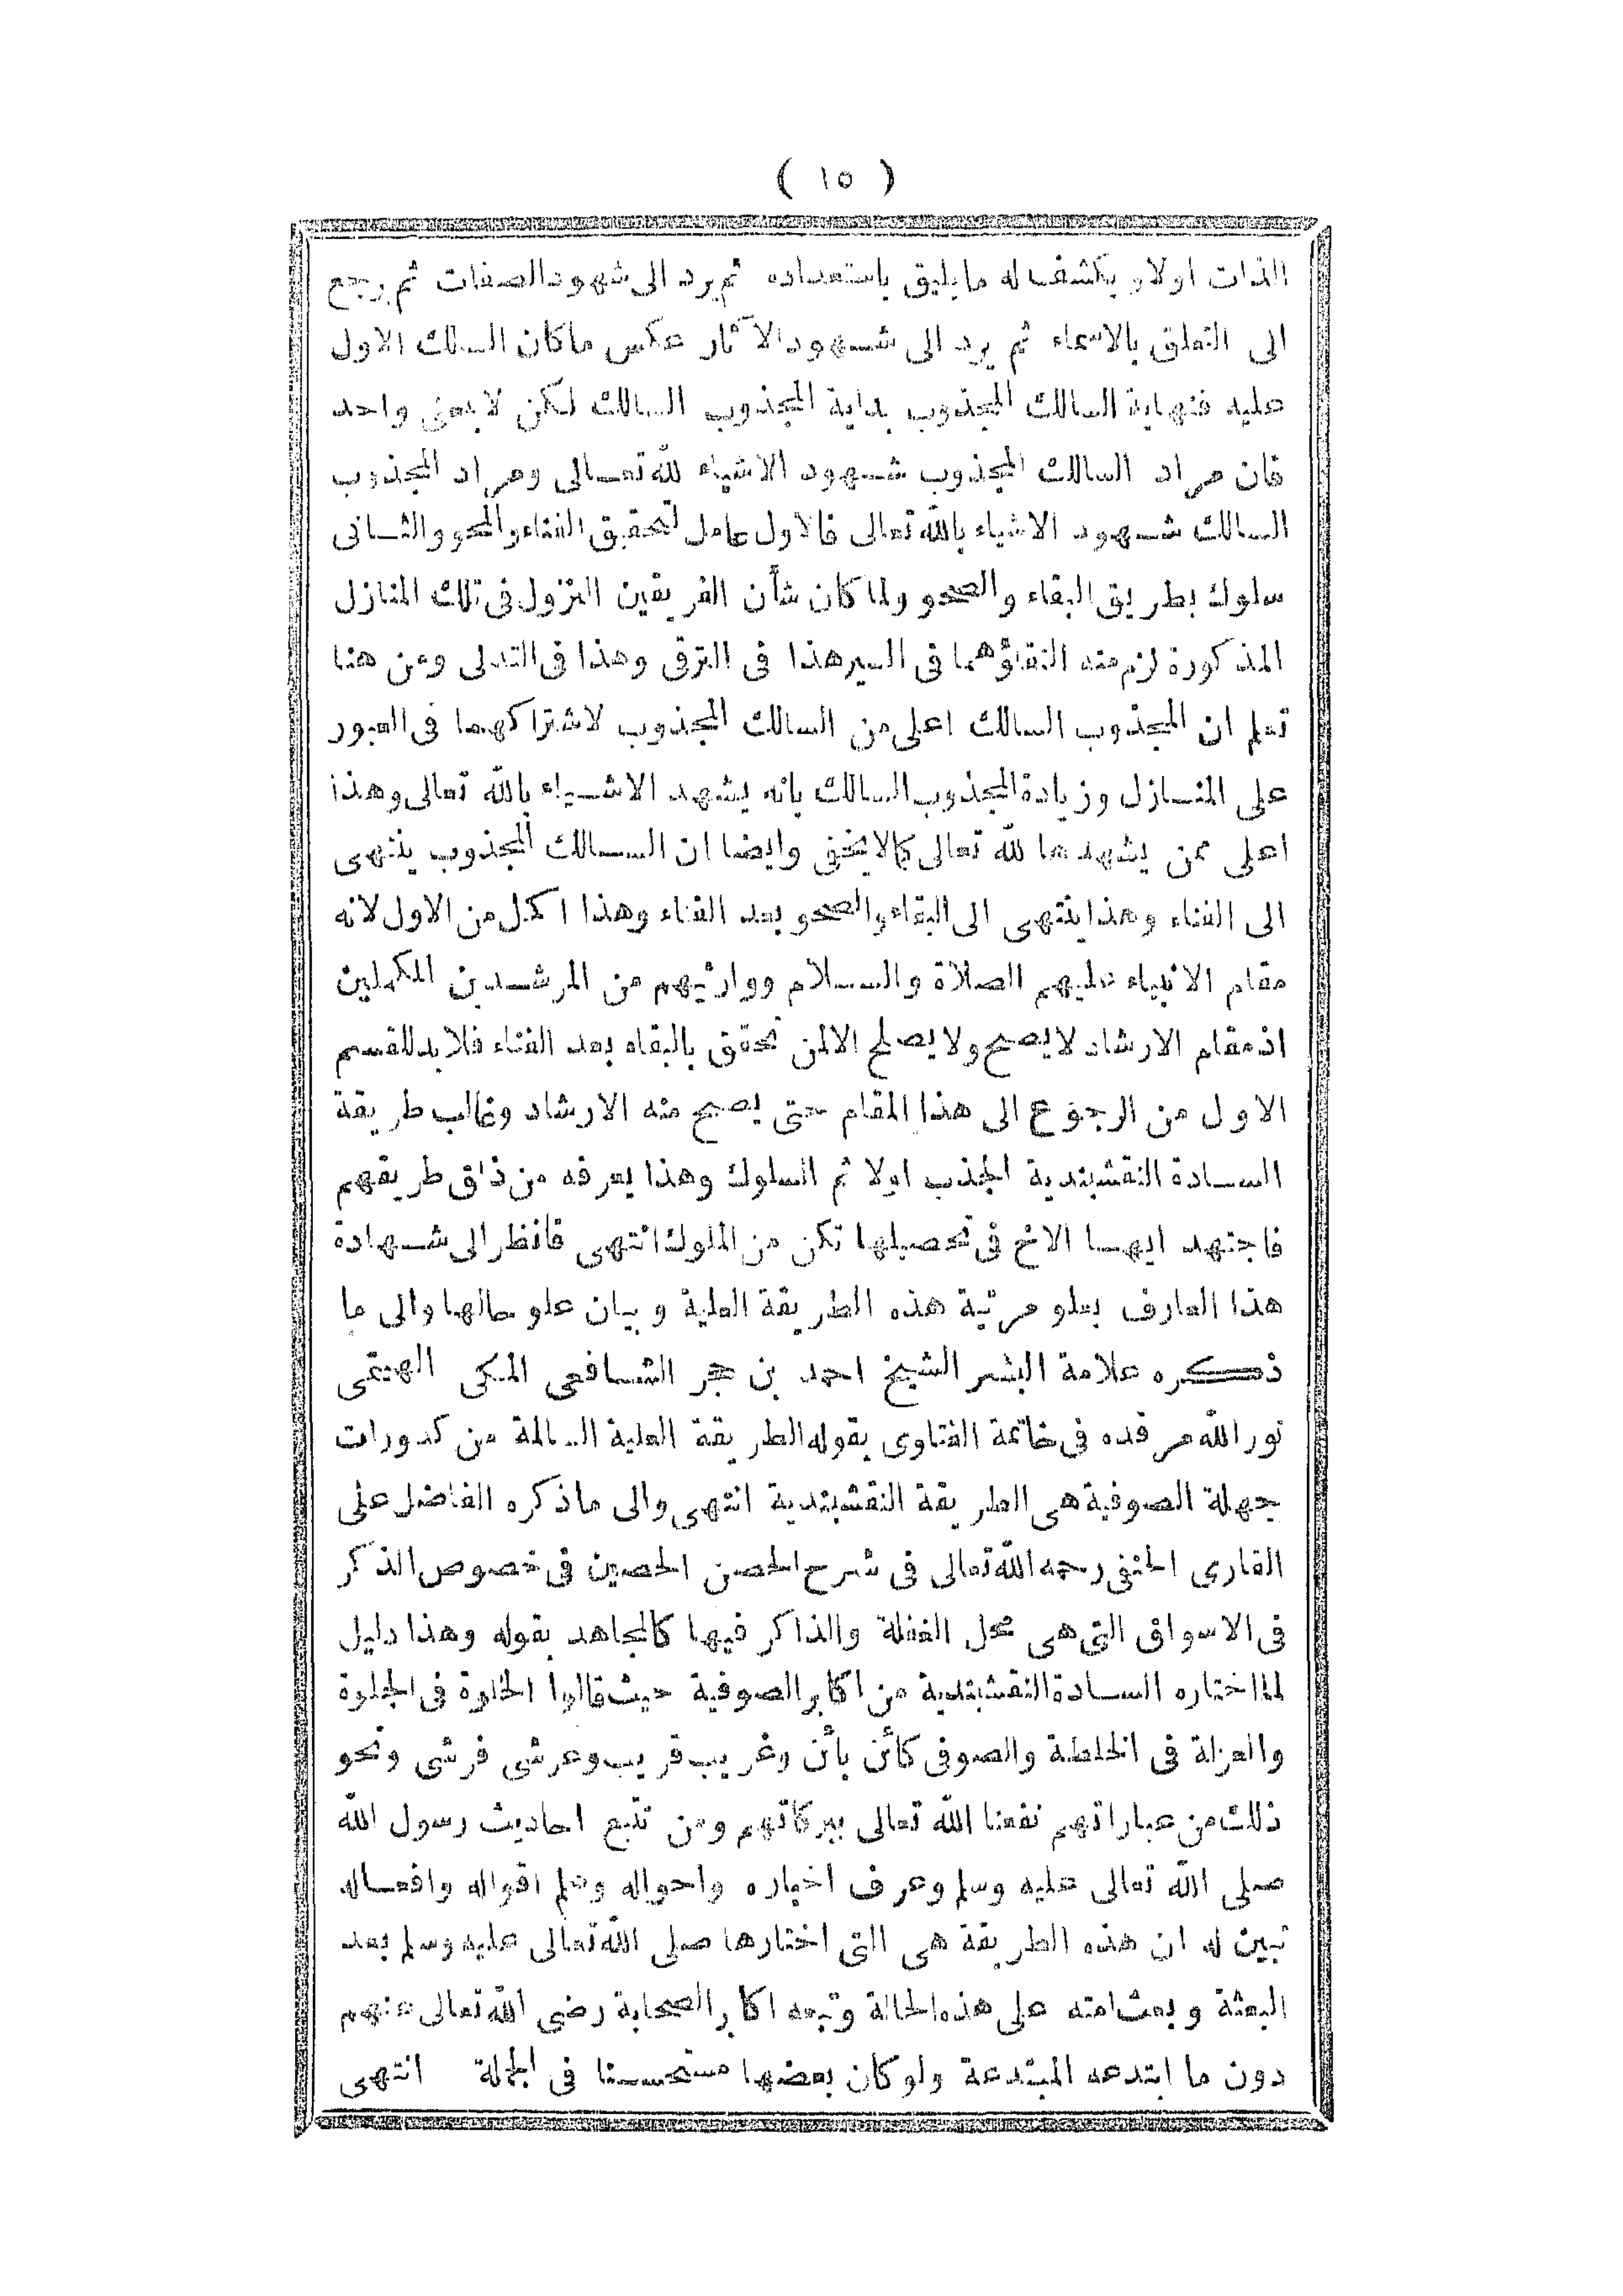 ( ١٥ )
الذات اولا و يكشف له ما يليق باستعداده ثم يرد الى شهود الصفات ثم يرجع
الى التعلق بالاسماء ثم يرد الى شهود الآثار عكس ما كان السالك الاول
عليه فنهاية السالك المجذوب بداية المجذوب السالك لكن لا بمعنى واحد
فان مراد السالك المجذوب شهود الاشياء لله تعالى ومراد المجذوب
السالك شهود الاشياء بالله تعالى فالاول عامل لتحقيق الفناء والمحو والثانى
سلوك بطريق البقاء والصحو ولما كان شأن الفريقين النزول فى تلك المنازل
المذكورة لزم منه التقاؤهما فى السير هذا فى الترقى وهذا فى التدلى ومن هنا
تعلم ان المجذوب السالك اعلى من السالك المجذوب لاشتراكهما فى العبور
على المنازل وزيادة المجذوب السالك بانه يشهد الاشياء بالله تعالى وهذا
اعلى ممن يشهدها لله تعالى كما لا يخفى وايضا ان السالك المجذوب ينتهى
الى الفناء وهذا ينتهى الى البقاء والصحو بعد الفناء وهذا اكمل من الاول لانه
مقام الانبياء عليهم الصلاة والسلام ووارثيهم من المرشدين المكملين
اذ مقام الارشاد لا يصح ولا يصلح الا لمن تحقق بالبقاء بعد الفناء فلا بد للقسم
الاول من الرجوع الى هذا المقام حتى يصح منه الارشاد وغالب طريقة
السادة النقشبندية الجذب اولا ثم السلوك وهذا يعرفه من ذاق طريقهم
فاجتهد ايها الاخ فى تحصيلها تكن من الملوك انتهى فانظر الى شهادة
هذا العارف بعلو مرتبة هذه الطريقة العلية و بيان علو حالها والى ما
ذكره علامة البشر الشيخ احمد بن حجر الشافعى المكى الهيتمى
نور الله مرقده فى خاتمة الفتاوى بقوله الطريقة العلية السالمة من كدورات
جهلة الصوفية هى الطريقة النقشبندية انتهى والى ما ذكره الفاضل على
القارى الحنفى رحمه الله تعالى فى شرح الحصن الحصين فى خصوص الذكر
فى الاسواق التى هى محل الغفلة والذاكر فيها كالمجاهد بقوله وهذا دليل
لما اختاره السادة النقشبندية من اكابر الصوفية حيث قالوا الخلوة فى الجلوة
والعزلة فى الخلطة والصوفى كائن بائن وغريب قريب وعرشى فرشى ونحو
ذلك من عباراتهم نفعنا الله تعالى ببركاتهم ومن تتبع احاديث رسول الله
صلى الله تعالى عليه وسلم وعرف اخباره واحواله وعلم اقواله وافعاله
تبين له ان هذه الطريقة هى التى اختارها صلى الله تعالى عليه وسلم بعد
البعثة و بعث امته على هذه الحالة وتبعه اكابر الصحابة رضى الله تعالى عنهم
دون ما ابتدعه المبتدعة ولو كان بعضها مستحسنا فى الجملة انتهى